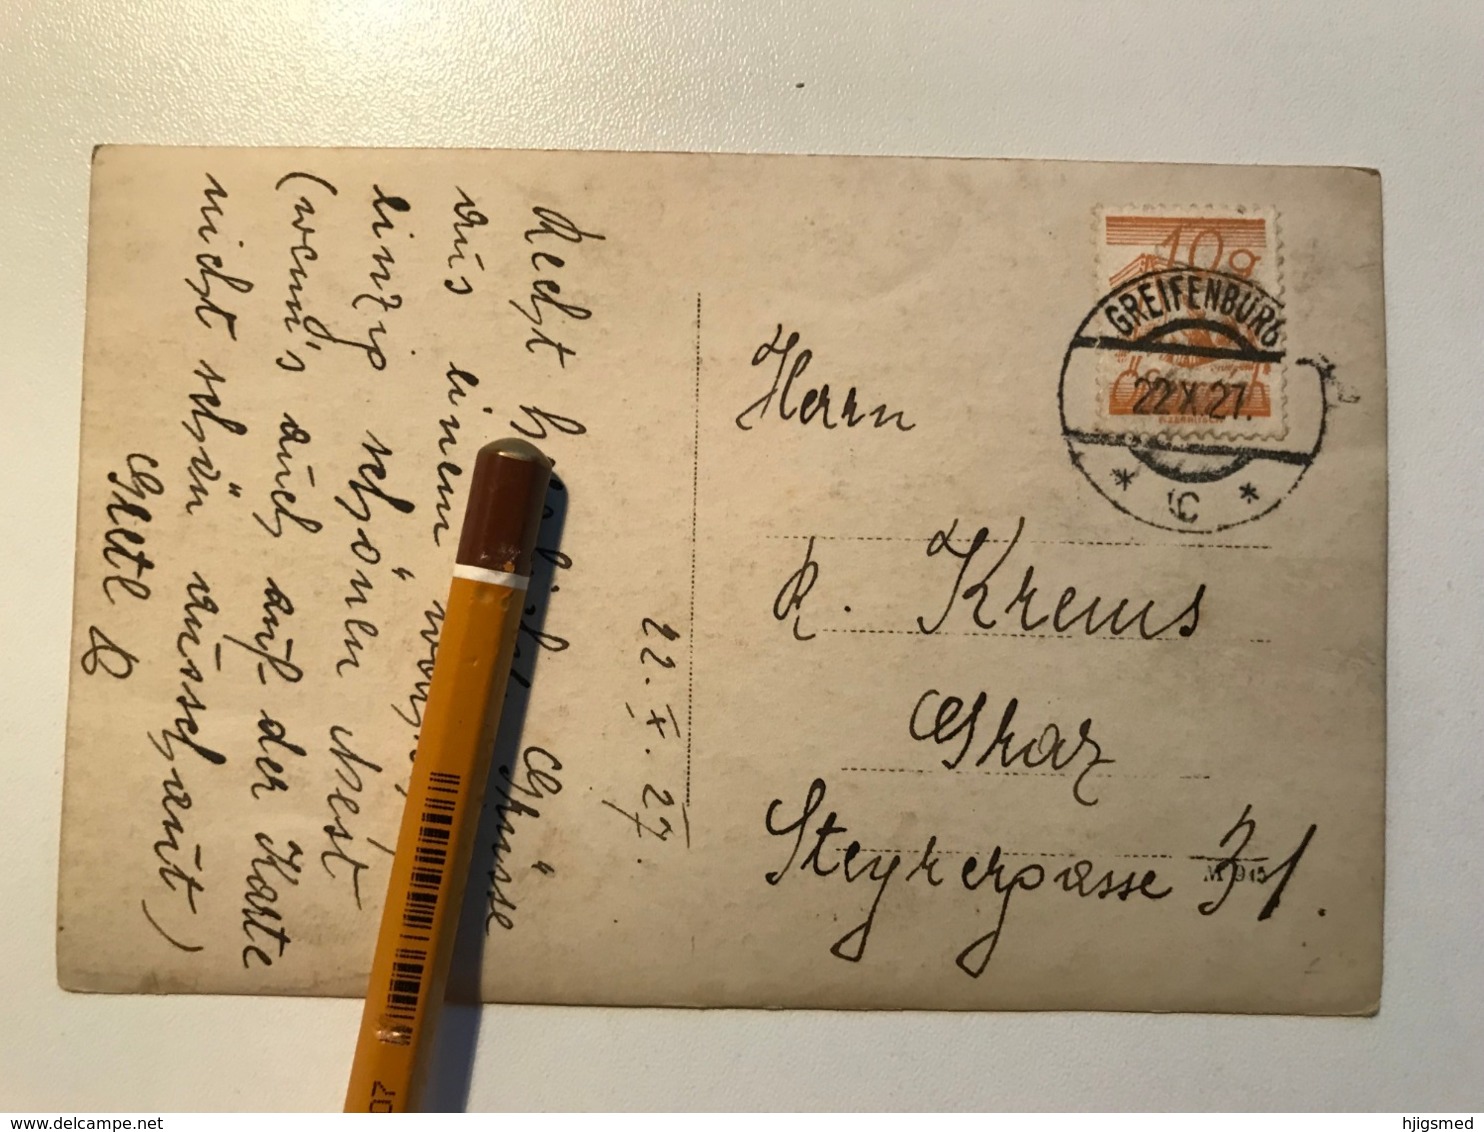 Recht Grüsse
aus einem
einzig schönen Nest
(wenn's auch auf der Karte
nicht schön ausschaut)
Gretl
22.X.27.
10g
GREIFENBURG
22 X 27.
* C *
Herrn
R. Krems
Graz
Steyrergasse 31.
207
www.delcampe.net
hjigsmed